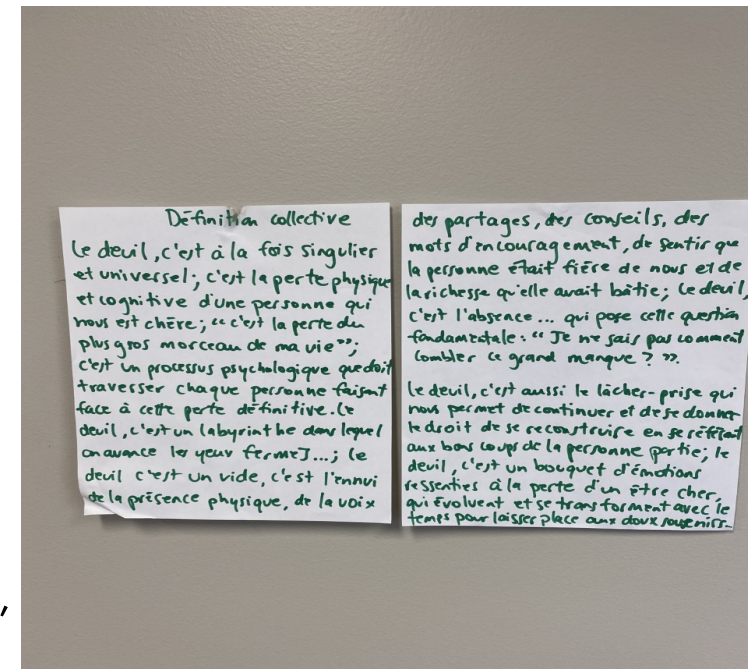 Définition collective
Le deuil, c'est à la fois singulier
et universel; c'est la perte physique
et cognitive d'une personne qui
nous est chère; "c'est la perte du
plus gros morceau de ma vie";
c'est un processus psychologique que doit
traverser chaque personne faisant
face à cette perte définitive. Le
deuil, c'est un labyrinthe dans lequel
on avance les yeux fermés...; le
deuil c'est un vide, c'est l'ennui
de la présence physique, de la voix
des partages, des conseils, des
mots d'encouragement, de sentir que
la personne était fière de nous et de
la richesse qu'elle avait bâtie; le deuil,
c'est l'absence... qui pose cette question
fondamentale: "Je ne sais pas comment
combler ce grand manque ? ".
Le deuil, c'est aussi le lâcher-prise qui
nous permet de continuer et de se donner
le droit de se reconstruire en se référant
aux bons coups de la personne partie; le
deuil, c'est un bouquet d'émotions
ressenties à la perte d'un être cher,
qui évoluent et se transforment avec le
temps pour laisser place aux doux souvenirs.
,